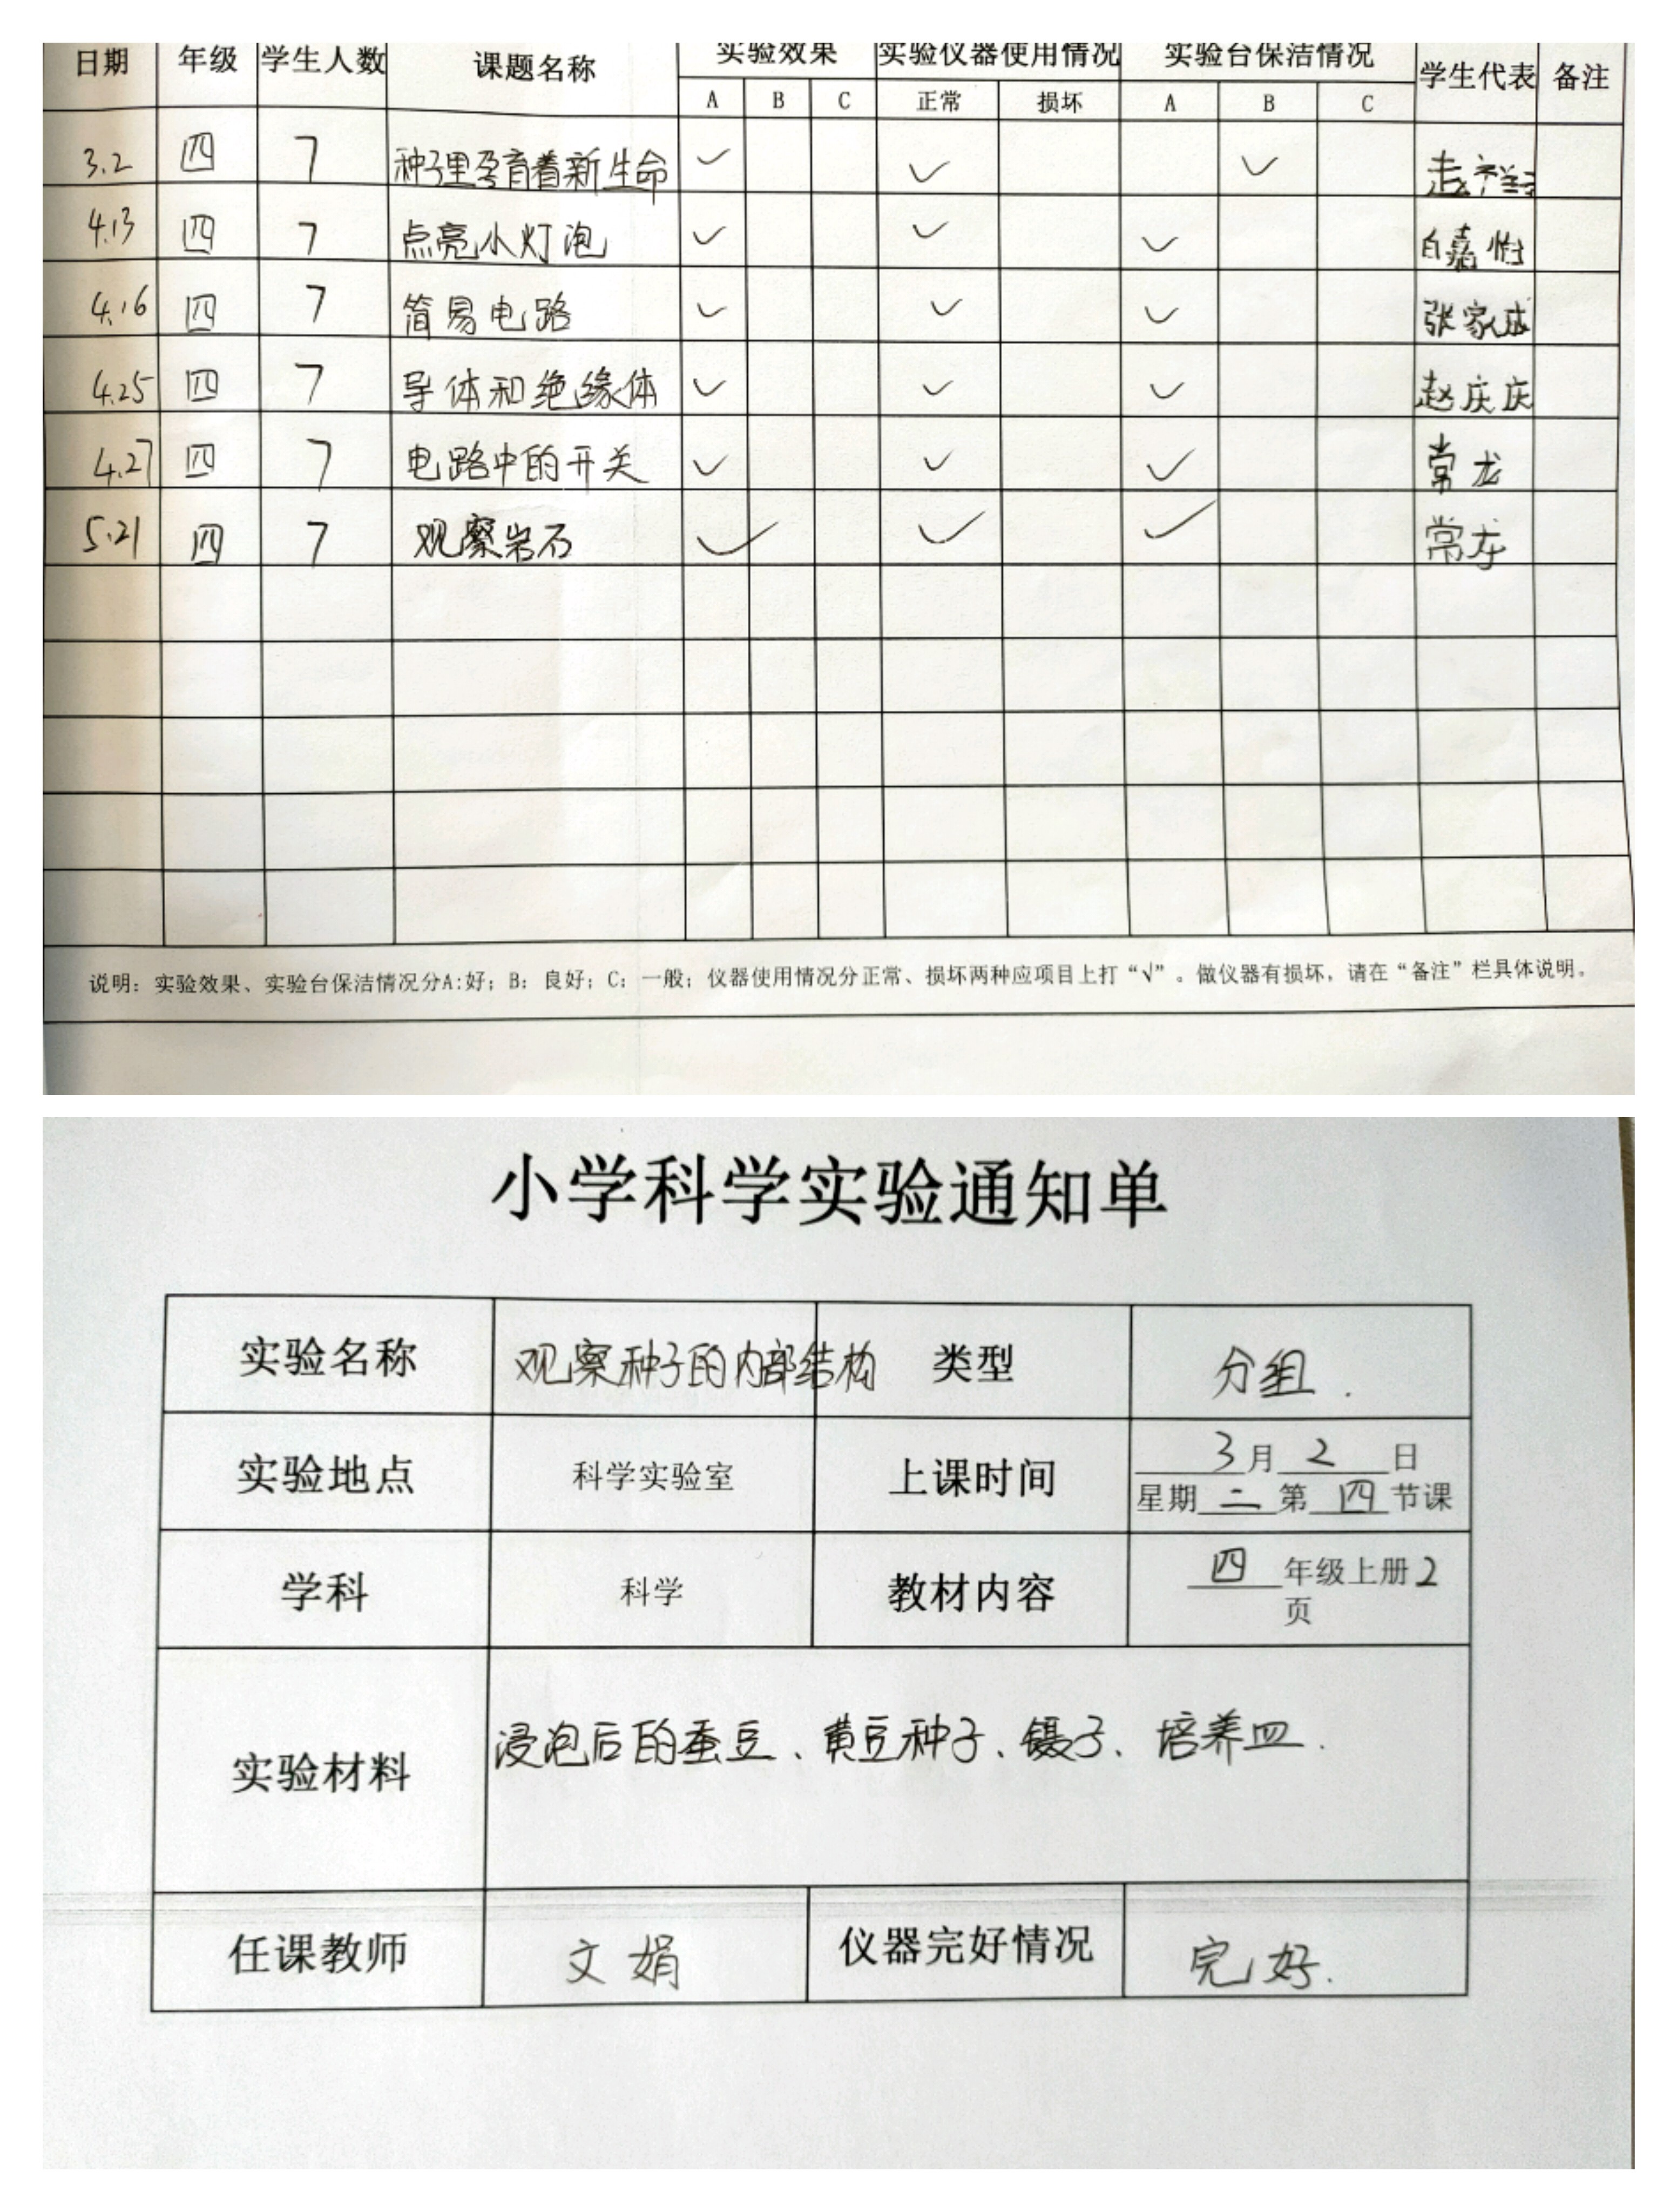 日期 年级 学生人数 课题名称 实验效果 实验仪器使用情况 实验台保洁情况 学生代表 备注
A B C 正常 损坏 A B C
3.2 四 7 种子里孕育着新生命 ✓ ✓ ✓
4.13 四 7 点亮小灯泡 ✓ ✓ ✓ 白嘉怡
4.16 四 7 简易电路 ✓ ✓ ✓ 张家成
4.25 四 7 导体和绝缘体 ✓ ✓ ✓ 赵庆庆
4.27 四 7 电路中的开关 ✓ ✓ ✓ 常龙
5.21 四 7 观察岩石 ✓ ✓ ✓ 常龙
说明：实验效果、实验台保洁情况分A:好；B：良好；C：一般；仪器使用情况分正常、损坏两种应项目上打“√”。做仪器有损坏，请在“备注”栏具体说明。
小学科学实验通知单
实验名称 观察种子的内部结构 类型 分组.
实验地点 科学实验室 上课时间 3月2日
星期二第四节课
学科 科学 教材内容 四年级上册2
页
实验材料 浸泡后的蚕豆、黄豆种子、镊子、培养皿.
任课教师 文娟 仪器完好情况 完好.